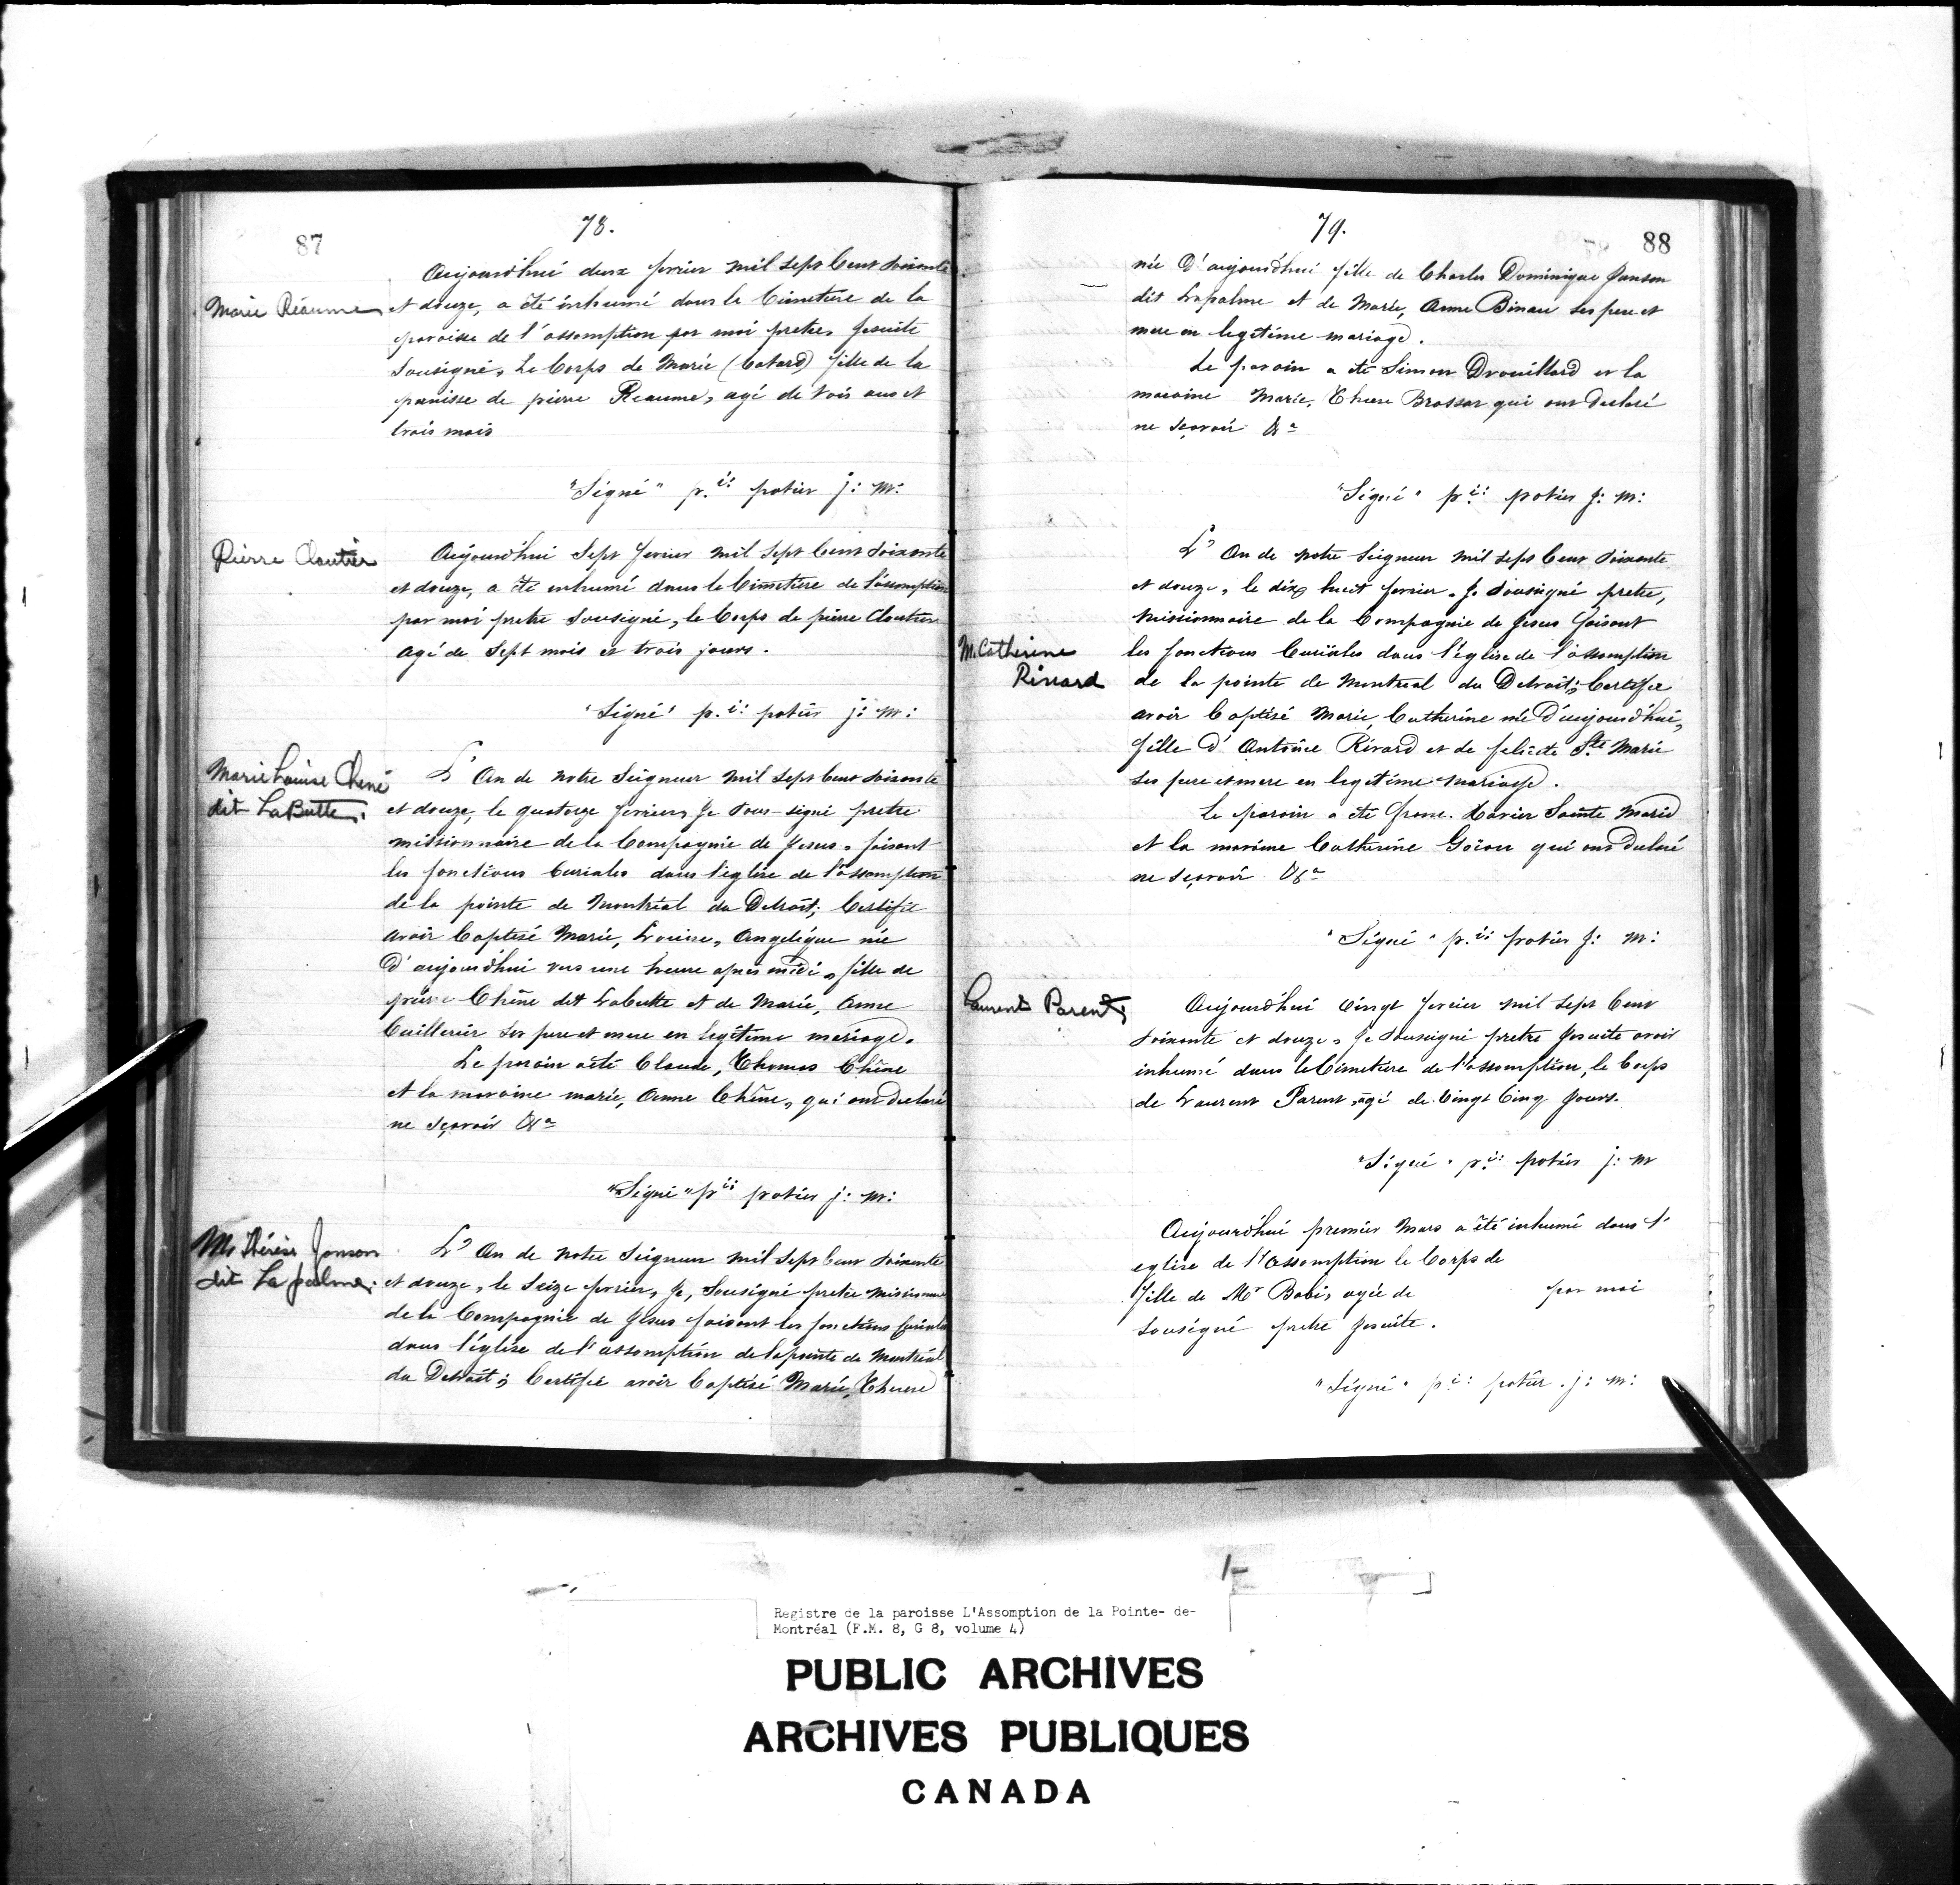 78.
87
Aujourd'hui deux fevrier mil sept Cent Soixante
Marie Réaume
et douze, a été inhumé dans le Cimetiere de la
paroisse de l'assomption par moi pretre, Jesuite
Sousigné, Le Corps de Marie (batard) fille de la
panisse de pierre Reaume, agé de trois ans et
trois mois
"Signé" p.i: potier j: m:
Pierre Cloutier
Aujourd'hui Sept fevrier mil Sept Cent Soixante
et douze, a été inhumé dans le Cimetiere de l'assomption
par moi pretre Sousigné, le Corps de pierre Cloutier
agé de Sept mois et trois jours.
"Signé" p.i: potier j: m:
Marie Louise Chené
dit LaButte.
L'An de notre Seigneur mil Sept Cent Soixante
et douze, le quatorze fevrier, Je Sous-signé pretre
missionnaire de la Compagnie de Jesus, faisant
les fonctions Curiales dans l'eglise de l'assomption
de la pointe de Montréal du Detroit; Certifie
avoir baptisé Marie, Louise, Angelique née
d'aujourdhui vers une heure apres midi, fille de
pierre Chêne dit Labutte et de Marie, Anne
Cuillerier ses pere et mere en legitime mariage.
Le parain a été Claude, Thomas Chêne
et la maraine marie, Anne Chêne, qui ont declaré
ne Sçavoir &a
"Signé" p.i: potier j: m:
M. Thérèse Janson
dit La palme.
L'An de notre Seigneur mil Sept Cent Soixante
et douze, le Seize fevrier, Je, Sousigné pretre missionnaire
de la Compagnie de Jesus faisant les fonctions Curiales
dans l'église de l'assomption de la pointe de Montréal
du Detroit; Certifie avoir baptisé Marie, Therese
79.
88
née d'aujourd'hui fille de Charles Dominique Janson
dit Lapalme et de Marie, Anne Binau ses pere et
mere en legitime mariage.
Le parain a été Simon Drouillard et la
maraine Marie, Therese Brossar qui ont declaré
ne sçavoir &a
"Signé" p.i: potier j: m:
L'An de notre Seigneur mil Sept Cent Soixante
et douze, le dix huit fevrier, Je Sousigné pretre,
missionnaire de la Compagnie de Jesus faisant
M. Catherine
Rivard
les fonctions Curiales dans l'église de l'assomption
de la pointe de Montreal du Detroit; Certifie
avoir baptisé Marie, Catherine née d'aujourd'hui,
fille d'Antoine Rivard et de felicité Ste Marie
ses pere et mere en legitime mariage.
Le parain a été Franc. Xavier Sainte Marie
et la maraine Catherine Goiou qui ont declaré
ne Sçavoir &a
"Signé" p.i: potier j: m:
Laurent Parent
Aujourd'hui vingt fevrier mil Sept Cent
Soixante et douze, Je Sousigné pretre Jesuite avoir
inhumé dans le Cimetiere de l'assomption, le Corps
de Laurent Parent, agé de vingt Cinq Jours.
"Signé" p.i: potier j: m
Aujourd'hui premier Mars a été inhumé dans l'
eglise de l'Assomption le Corps de
fille de Mr Babi, agée de par moi
Sousigné pretre Jesuite.
"Signé" p.i: potier. j: m:
Registre de la paroisse L'Assomption de la Pointe- de-
Montréal (F.M. 8, G 8, volume 4)
PUBLIC ARCHIVES
ARCHIVES PUBLIQUES
CANADA